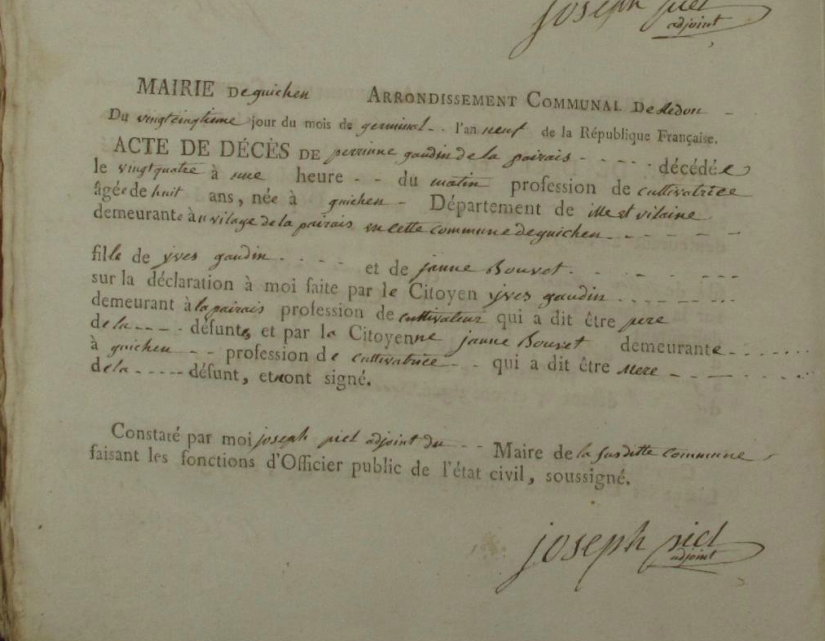 joseph piel
adjoint
MAIRIE De guichen ARRONDISSEMENT COMMUNAL De Redon -
Du vingtcinqtieme jour du mois de germinal - . l'an neuf de la République Française.
ACTE DE DÉCÈS DE perrinne gaudin de la pairais - - - - - décédée
le vingtquatre à une heure - - du matin profession de cultivatrice
âgée de huit ans, née à guichen - Département de ille et vilaine
demeurante à u vilage de la pairais en cette commune de guichen - - - - - -
fille de yves gaudin - - - - et de janne Bouvet - - - - - -
sur la déclaration à moi faite par le Citoyen yves gaudin - - - - - -
demeurant à la pairais profession de cultivateur qui a dit être pere
de la - - - - défunte et par la Citoyenne janne Bouvet demeurante - - - - -
à guichen - - profession de cultivatrice - - qui a dit être Mere - - - - -
de la - - - - - défunt, et nont signé.
Constaté par moi joseph piel adjoint du - - Maire de la susditte Commune
faisant les fonctions d'Officier public de l'état civil, soussigné.
joseph piel
adjoint